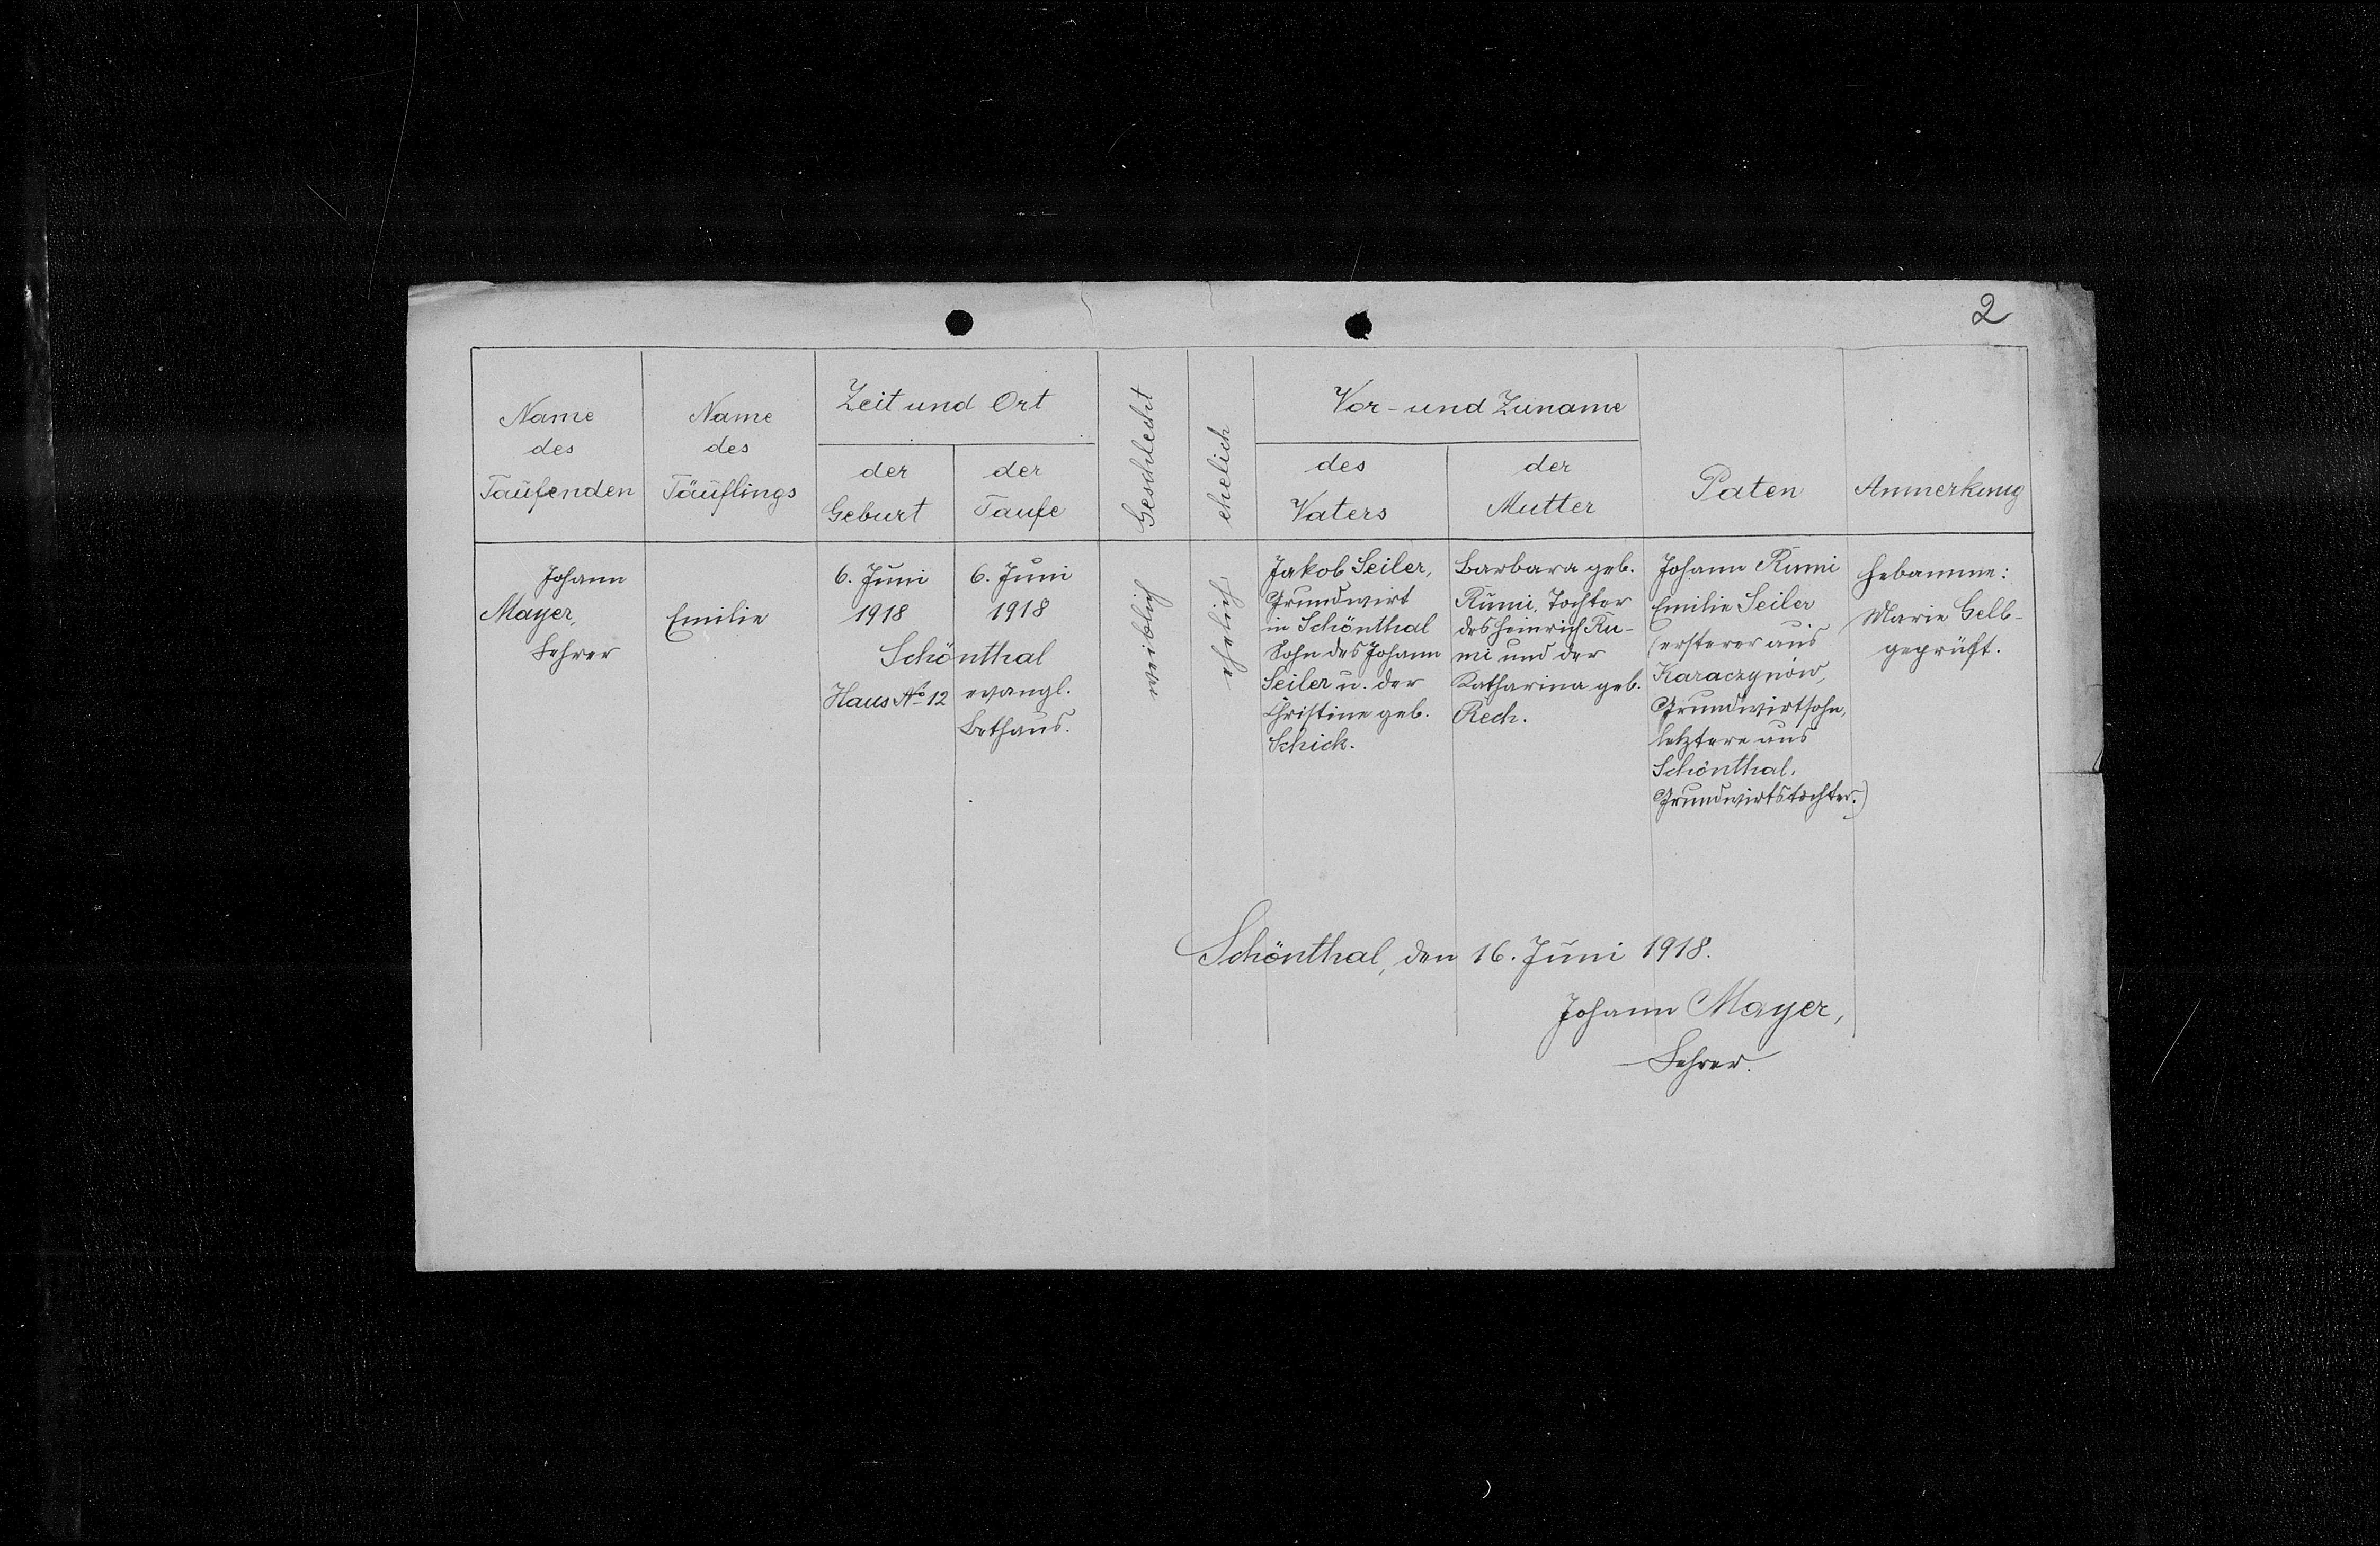 2
Name
des
Taufenden
Name
des
Täuflings
Zeit und Ort
der
Geburt
der
Taufe
Geschlecht
ehelich
Vor- und Zuname
des
Vaters
der
Mutter
Paten
Anmerkung
Johann
Mayer,
Lehrer
Emilie
6. Juni
1918
6. Juni
1918
Schönthal
Haus No 12
evangl.
Bethaus.
weiblich
ehelich
Jakob Seiler,
Grundwirt
in Schönthal
Sohn des Johann
Seiler u. der
Christine geb.
Schick.
Barbara geb.
Rumi, Tochter
des Heinrich Ru-
mi und der
Katharina geb.
Rech.
Johann Rumi
Emilie Seiler
(ersterer aus
Karaczynów,
Grundwirtsohn,
letztere aus
Schönthal,
Grundwirtstochter.)
Hebamme:
Marie Gelb-
geprüft.
Schönthal, den 16. Juni 1918.
Johann Mayer,
Lehrer.